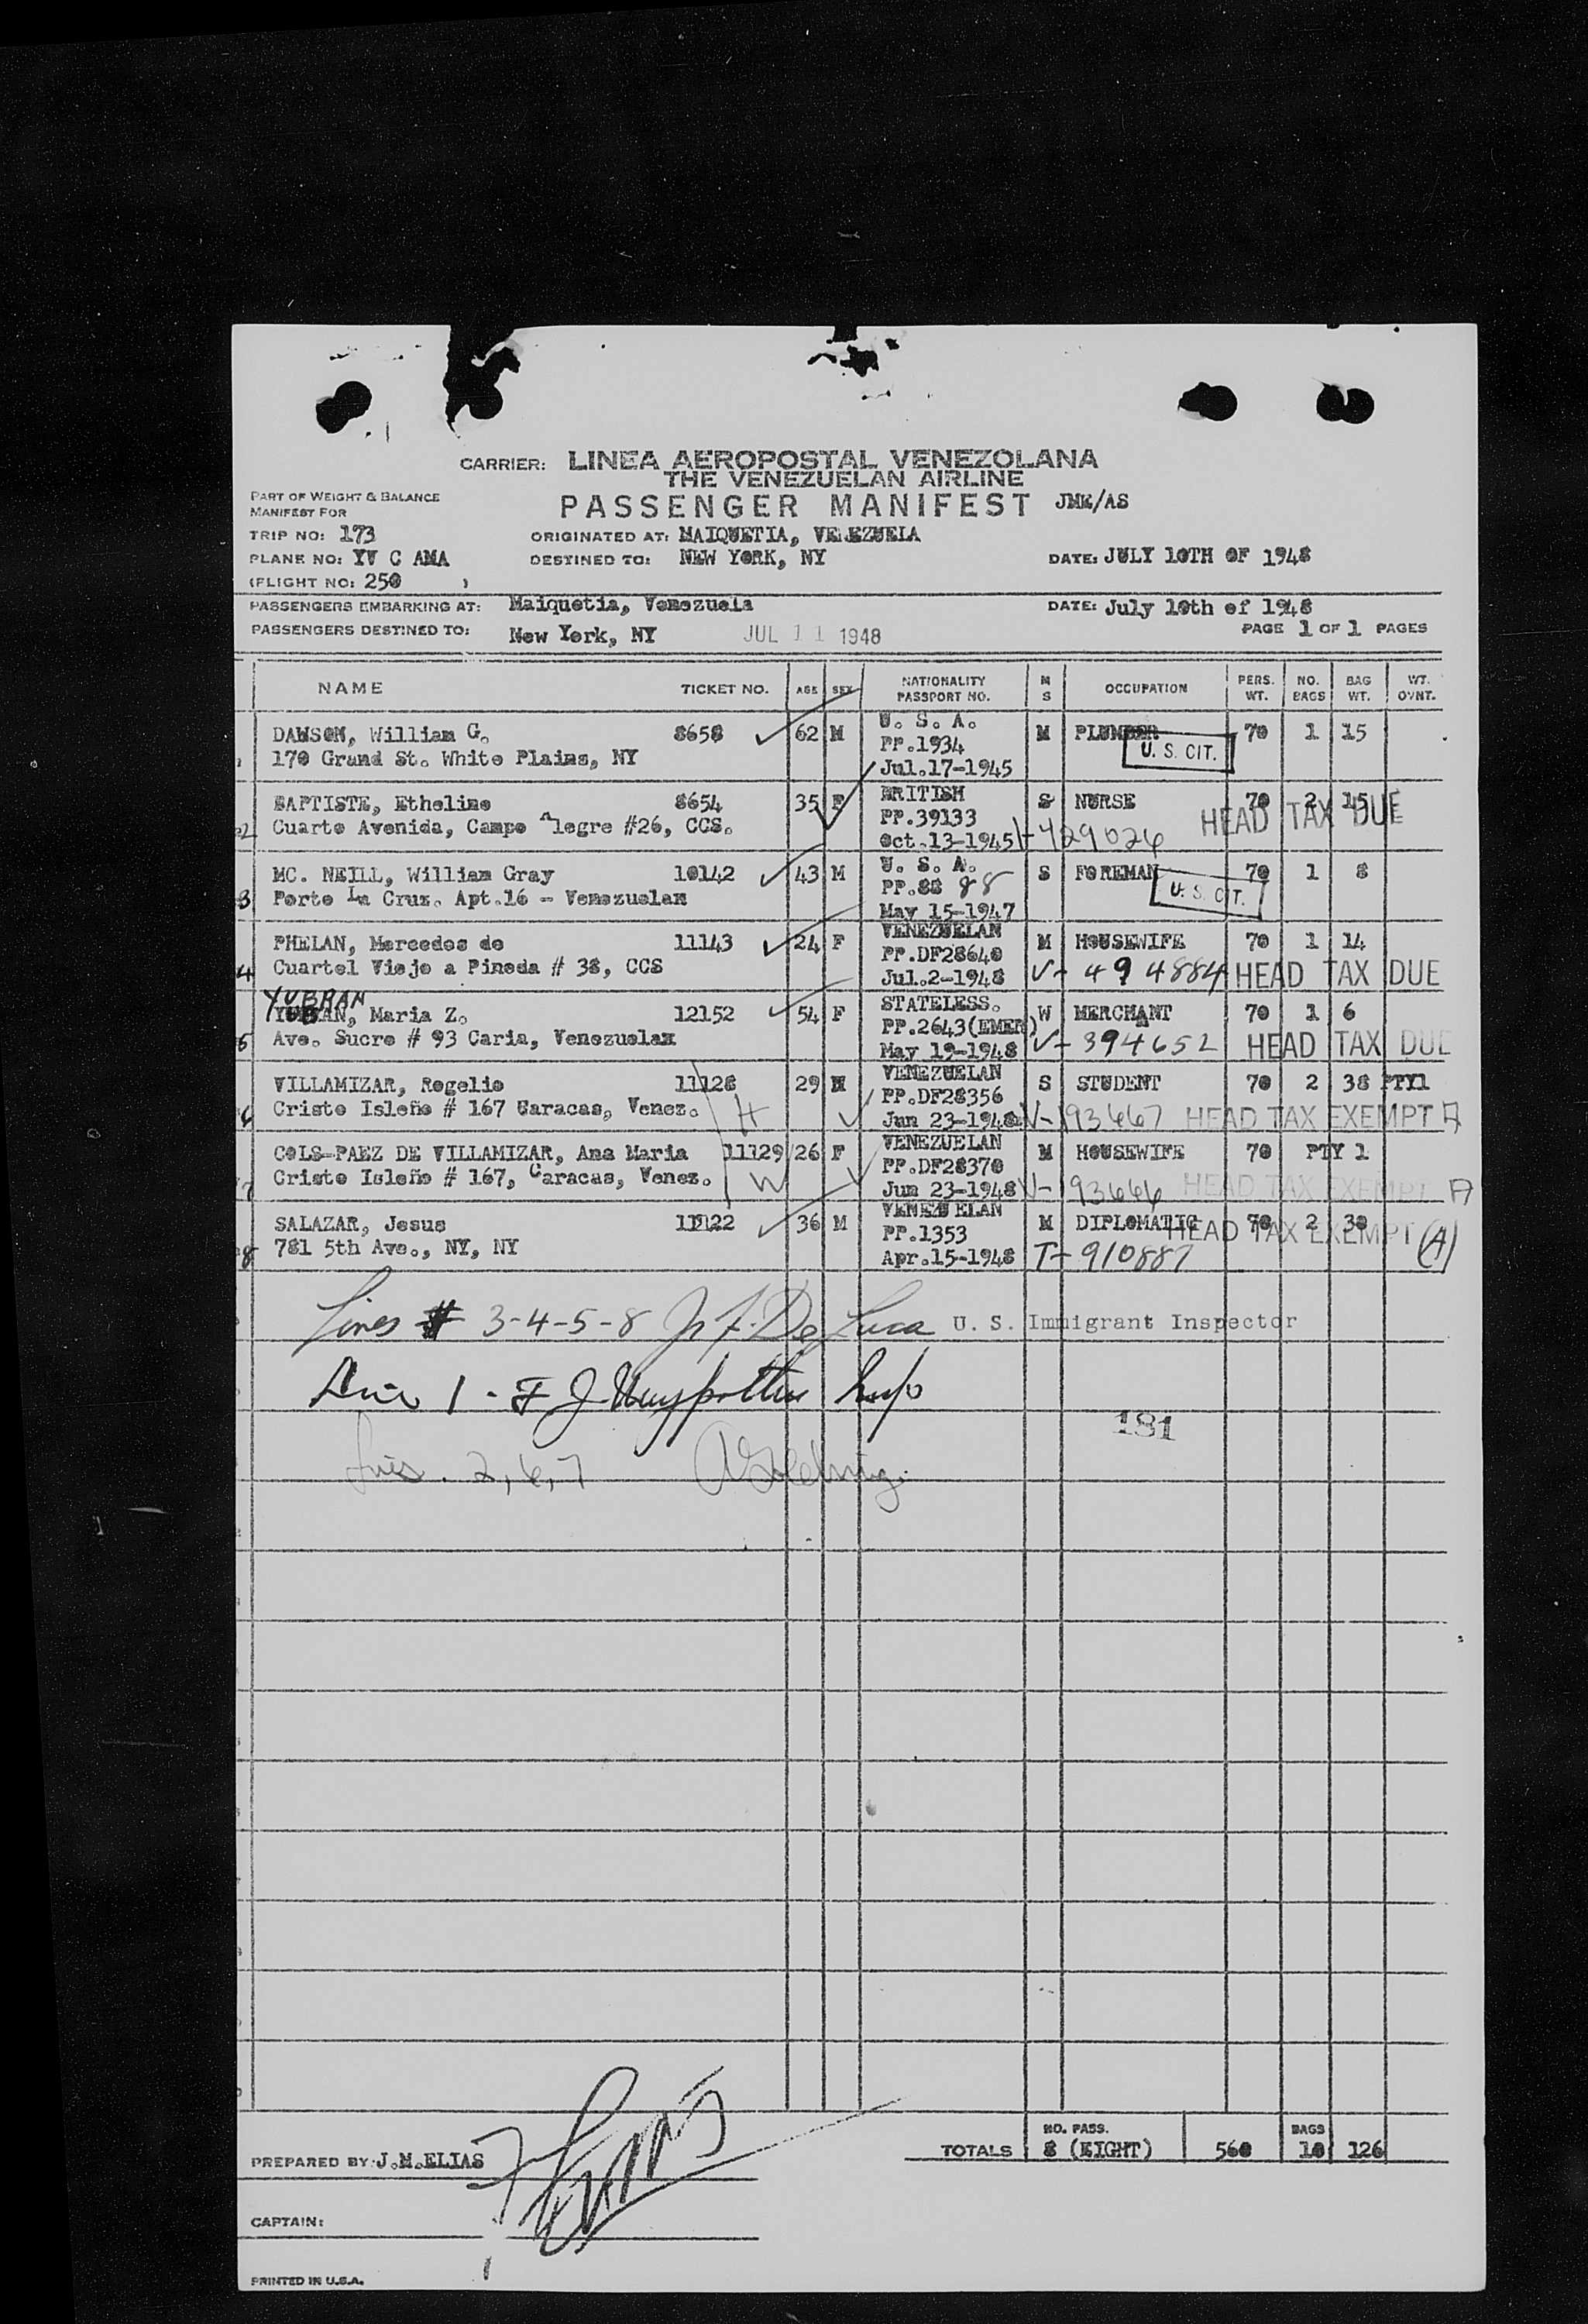 CARRIER: LINEA AEROPOSTAL VENEZOLANA
THE VENEZUELAN AIRLINE
PART OF WEIGHT & BALANCE
MANIFEST FOR
PASSENGER MANIFEST JME/AS
TRIP NO: 173 ORIGINATED AT: MAIQUETIA, VENEZUELA
PLANE NO: YV C AMA DESTINED TO: NEW YORK, NY DATE: JULY 10TH OF 1948
(FLIGHT NO: 250 )
PASSENGERS EMBARKING AT: Maiquetia, Venezuela DATE: July 10th of 1948
PASSENGERS DESTINED TO: New York, NY JUL 11 1948 PAGE 1 OF 1 PAGES
NAME TICKET NO. AGE SEX NATIONALITY PASSPORT NO. M S OCCUPATION PERS. WT. NO. BAGS BAG WT. WT. OVNT.
DAWSON, William G. 8658 62 M U. S. A. M PLUMBER 70 1 15
1 170 Grand St. White Plains, NY PP.1934 U. S. CIT.
Jul.17-1945
BAPTISTE, Etheline 8654 35 F BRITISH S NURSE 70 2 15
2 Cuarto Avenida, Campo Alegre #26, CCS. PP.39133 HEAD TAX DUE
Oct.13-1945 V-429026
MC. NEILL, William Gray 10142 43 M U. S. A. S FOREMAN 70 1 8
3 Porto La Cruz. Apt.16 - Venezuelax PP.88 88 U. S. CIT.
May 15-1947
PHELAN, Mercedes de 11143 24 F VENEZUELAN M HOUSEWIFE 70 1 14
4 Cuartel Viejo a Pineda # 38, CCS PP.DF28640
Jul.2-1948 V-494884 HEAD TAX DUE
YUBRAN
YUBRAN, Maria Z. 12152 54 F STATELESS. W MERCHANT 70 1 6
5 Ave. Sucre # 93 Caria, Venezuelax PP.2643(EMER)
May 19-1948 V-394652 HEAD TAX DUE
VILLAMIZAR, Rogelio 11128 29 M VENEZUELAN S STUDENT 70 2 38 PTY1
6 Cristo Isleño # 167 Caracas, Venez. H PP.DF28356
Jun 23-1948 V-193667 HEAD TAX EXEMPT A
COLS-PAEZ DE VILLAMIZAR, Ana Maria 11129 26 F VENEZUELAN M HOUSEWIFE 70 PTY 1
7 Cristo Isleño # 167, Caracas, Venez. W PP.DF28370
Jun 23-1948 V-193666 HEAD TAX EXEMPT A
SALAZAR, Jesus 11122 36 M VENEZUELAN M DIPLOMATIC 70 2 30
8 781 5th Ave., NY, NY PP.1353 HEAD TAX EXEMPT (A)
Apr.15-1948 T-910887
Lines # 3-4-5-8 J. F. De Luca U. S. Immigrant Inspector
Line 1 - F J Insp
181
Lines. 2, 6, 7
TOTALS NO. PASS. 8 (EIGHT) 560 BAGS 10 126
PREPARED BY: J.M.ELIAS
CAPTAIN:
PRINTED IN U.S.A.